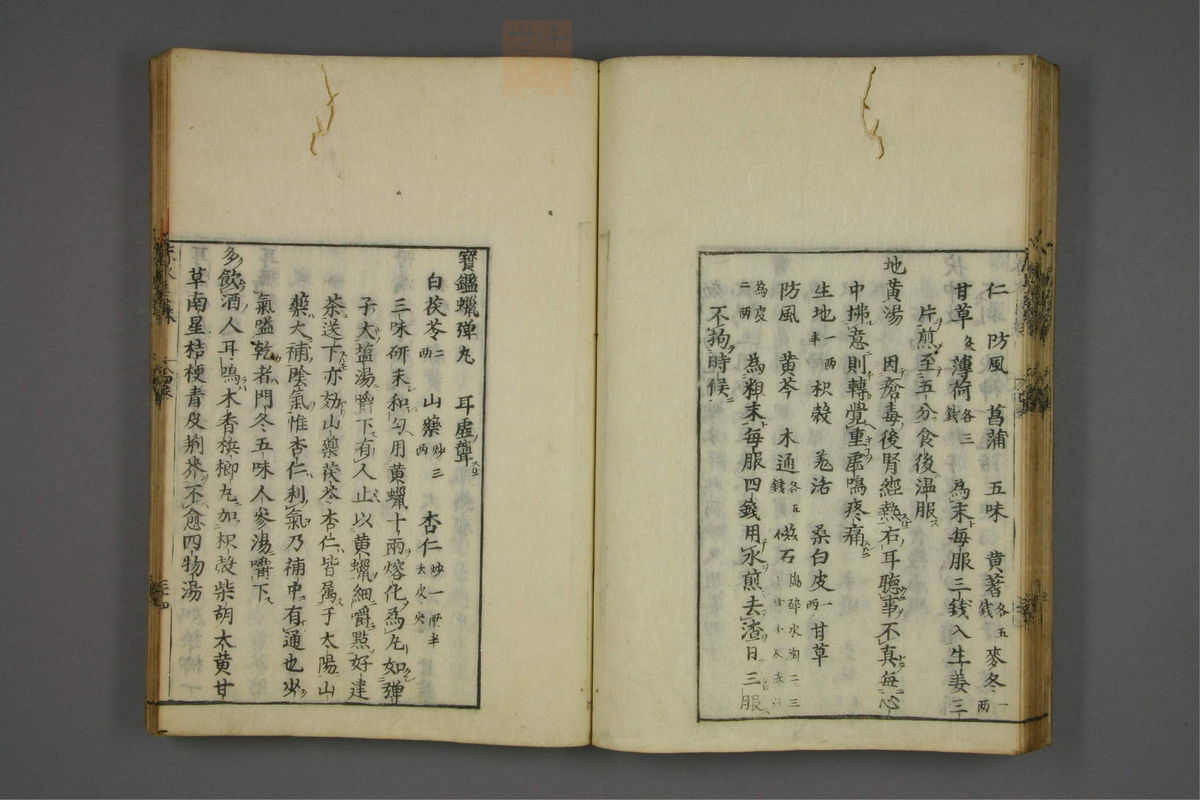 仁 防風 菖蒲 五味 黄蓍各五錢 麥冬一兩
甘草炙 薄荷各三錢 為末每服三錢入生姜三
片煎至五分食後温服
地黄湯 因瘡毒後腎經熱右耳聴事不真每心
中拂意則轉覺重虚鳴疼痛
生地一兩半 枳殻 羌活 桑白皮一兩 甘草
防風 黄芩 木通各五錢 磁石
為度二兩 為粗末每服四錢用水煎去渣日三服
不拘時候
寶鑑蠟弾丸 耳虚聾
白茯苓二兩 山藥炒三兩 杏仁炒一兩半去皮尖
三味研末和勻用黄蠟十兩熔化為丸如弾
子大塩湯嚼下有人止以黄蠟細嚼點好建
茶送下亦効山藥茯苓杏仁皆属于太陽山
藥大補陰氣惟杏仁利氣乃補中有通也
氣嗌乾者門冬五味人參湯嚼下
多飲酒人耳鳴木香檳榔丸加枳殻柴胡大黄甘
草南星桔梗青皮荆芥不愈四物湯